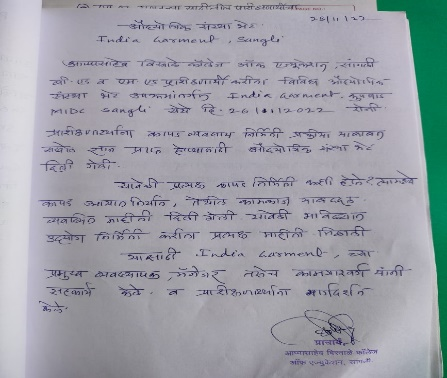 25/11/22
औद्योगिक संस्था भेट
India Garment, Sangli
आप्पासाहेब बिरनाळे कॉलेज ऑफ एज्युकेशन, सांगली
बी.एड व एम एड प्रशिक्षणार्थी करीता विविध औद्योगिक
संस्था भेट उपक्रमांतर्गत India Garment, कुपवाड
MIDC Sangli येथे दि. 26/11/2022 रोजी
प्रशिक्षणार्थींना कापड व्यवसाय निर्मिती प्रक्रीया याबाबत
ज्ञान प्राप्त होण्यासाठी औद्योगिक संस्था भेट
दिली गेली.
यावेळी प्रत्यक्ष कापड निर्मिती कशी होते? त्यामध्ये
कापड आयात निर्यात, तेथील कामकाज याबद्दल
व्यवस्थित माहीती दिली गेली यावेळी भविष्यात
उद्योग निर्मिती करीता प्रत्यक्ष माहीती मिळाली
यासाठी India Garment, च्या
प्रमुख व्यवस्थापक, मॅनेजर, तसेच कामगारवर्ग यांनी
सहकार्य केले. व प्रशिक्षणार्थींना मार्गदर्शन
केले.
प्राचार्य
आप्पासाहेब बिरनाळे कॉलेज
ऑफ एज्युकेशन, सांगली